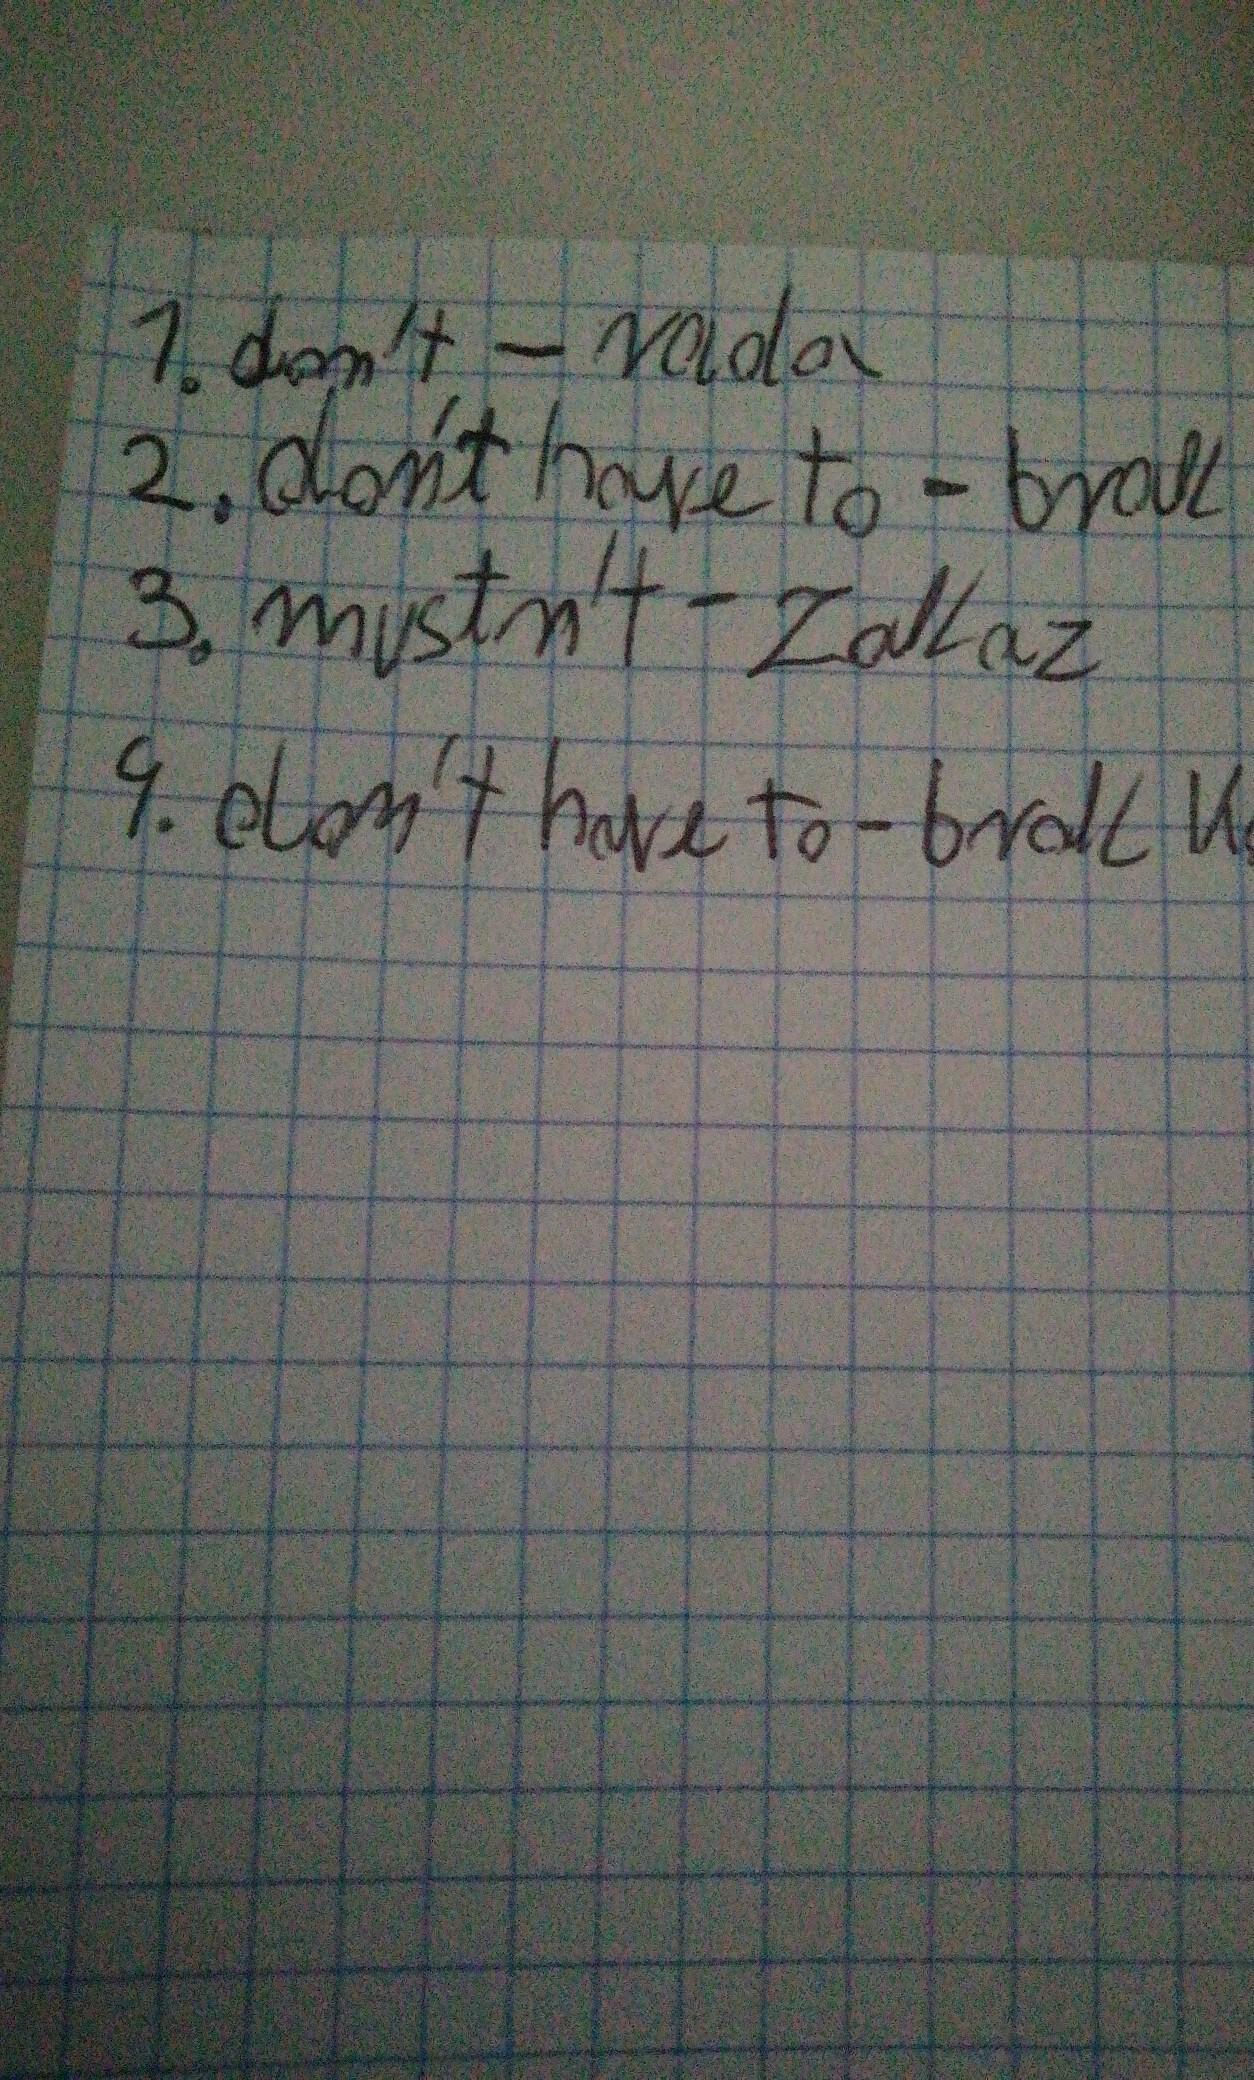 1. don't - rada
2. don't have to - brak
3. mustn't - Zakaz
4. don't have to - brak